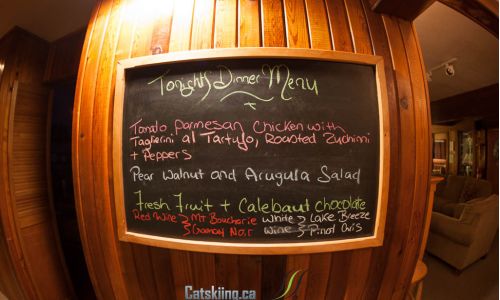 Tonight's Dinner Menu
Tomato parmesan chicken with
Taglierini al Tartufo, Roasted Zuchinni
+ Peppers
Pear Walnut and Arugula Salad
Fresh Fruit + Calebaut chocolate
Red Wine } MT Boucherie White } Lake Breeze
} Gamay Noir Wine } Pinot Gris
Catskiing.ca